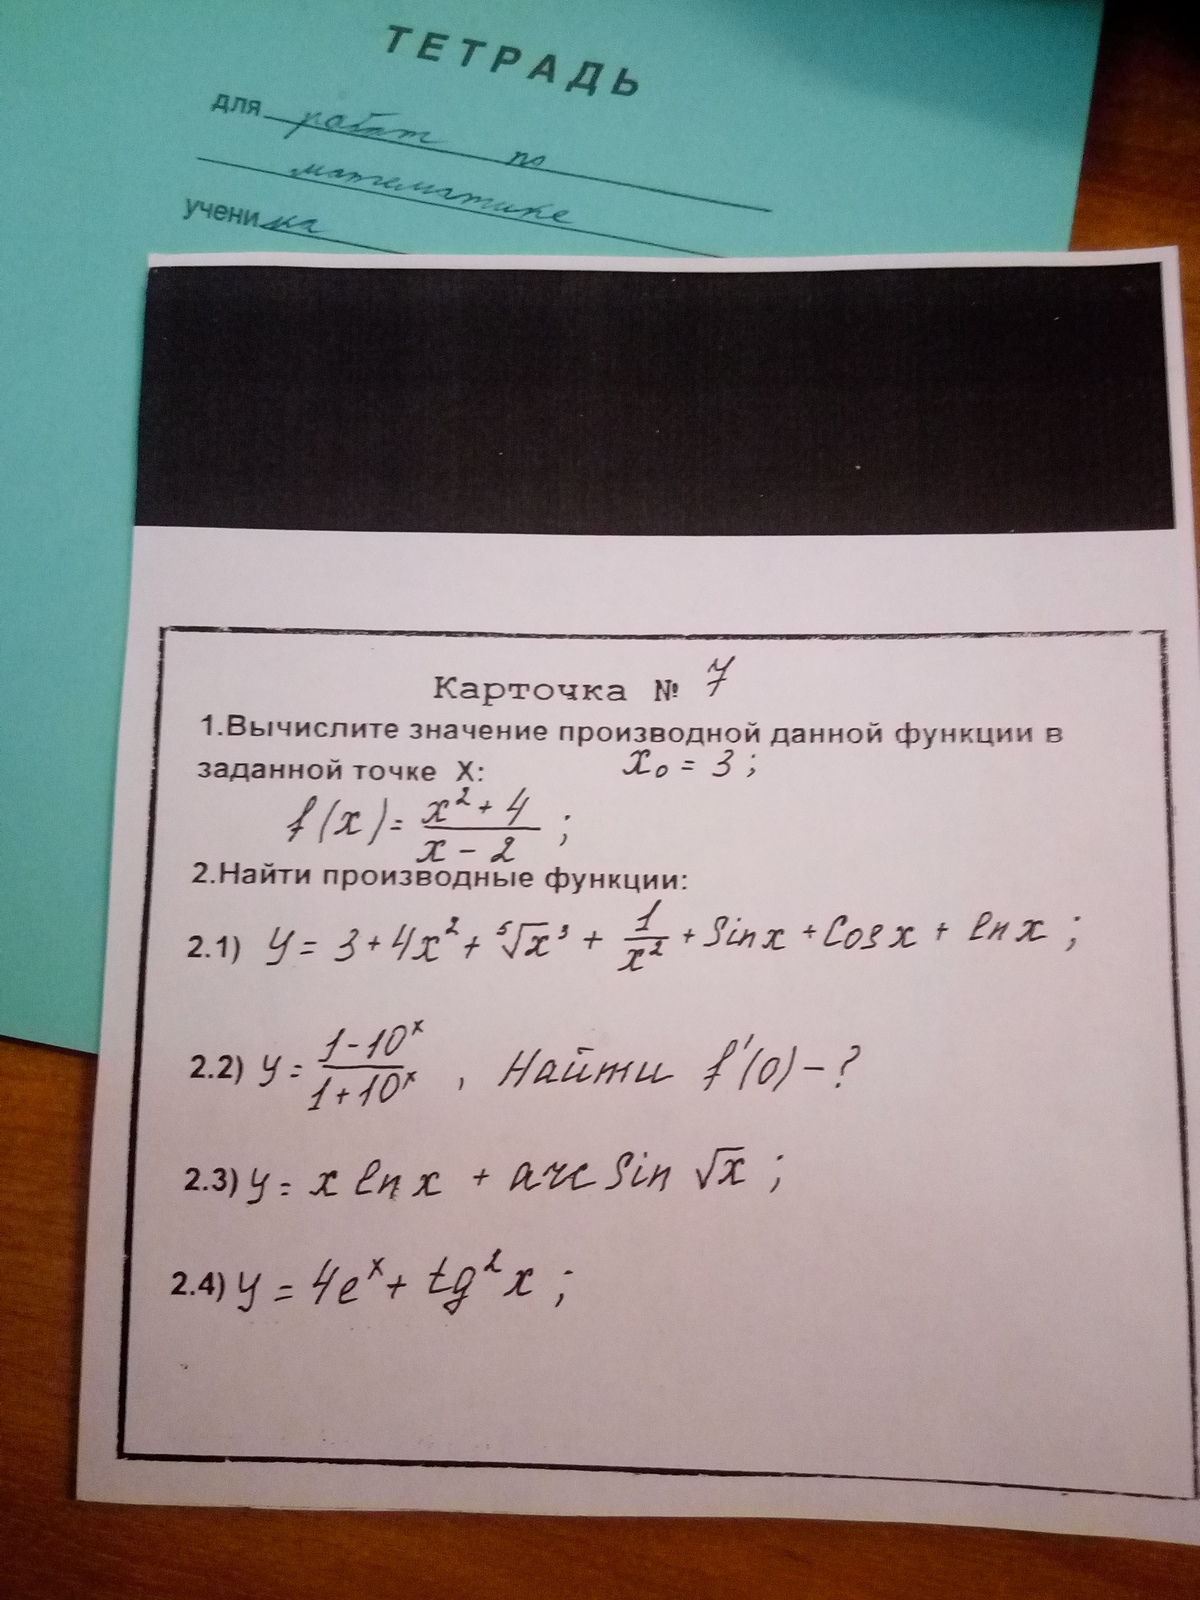 ТЕТРАДЬ
для работ по
математике
учени ка
Карточка № 7
1.Вычислите значение производной данной функции в
заданной точке X: x₀ = 3 ;
f(x) = (x² + 4)/(x - 2) ;
2.Найти производные функции:
2.1) y = 3 + 4x² + ⁵√x³ + 1/x² + Sin x + Cos x + ln x ;
2.2) y = (1 - 10ˣ)/(1 + 10ˣ) , Найти f'(0) - ?
2.3) y = x ln x + arc Sin √x ;
2.4) y = 4eˣ + tg² x ;